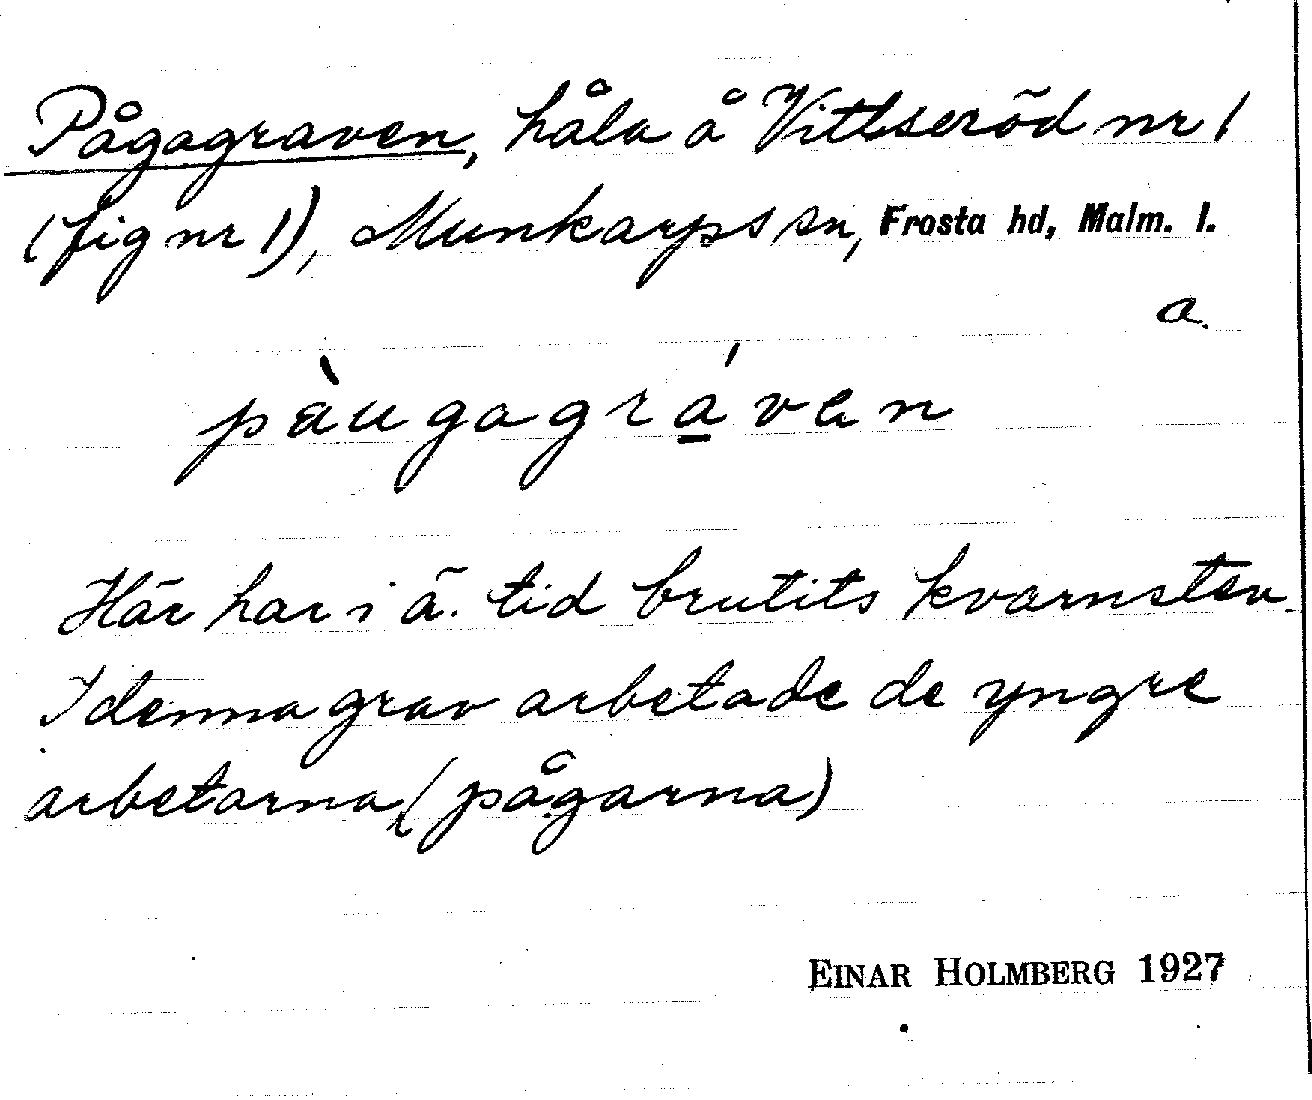 Pågagraven, håla å Vittseröd nr 1
(fig nr 1), Munkarps sn, Frosta hd, Malm. l.
a.
pàugagráven
Här har i ä. tid brutits kvarnsten.
I denna grav arbetade de yngre
arbetarna (pågarna)
EINAR HOLMBERG 1927